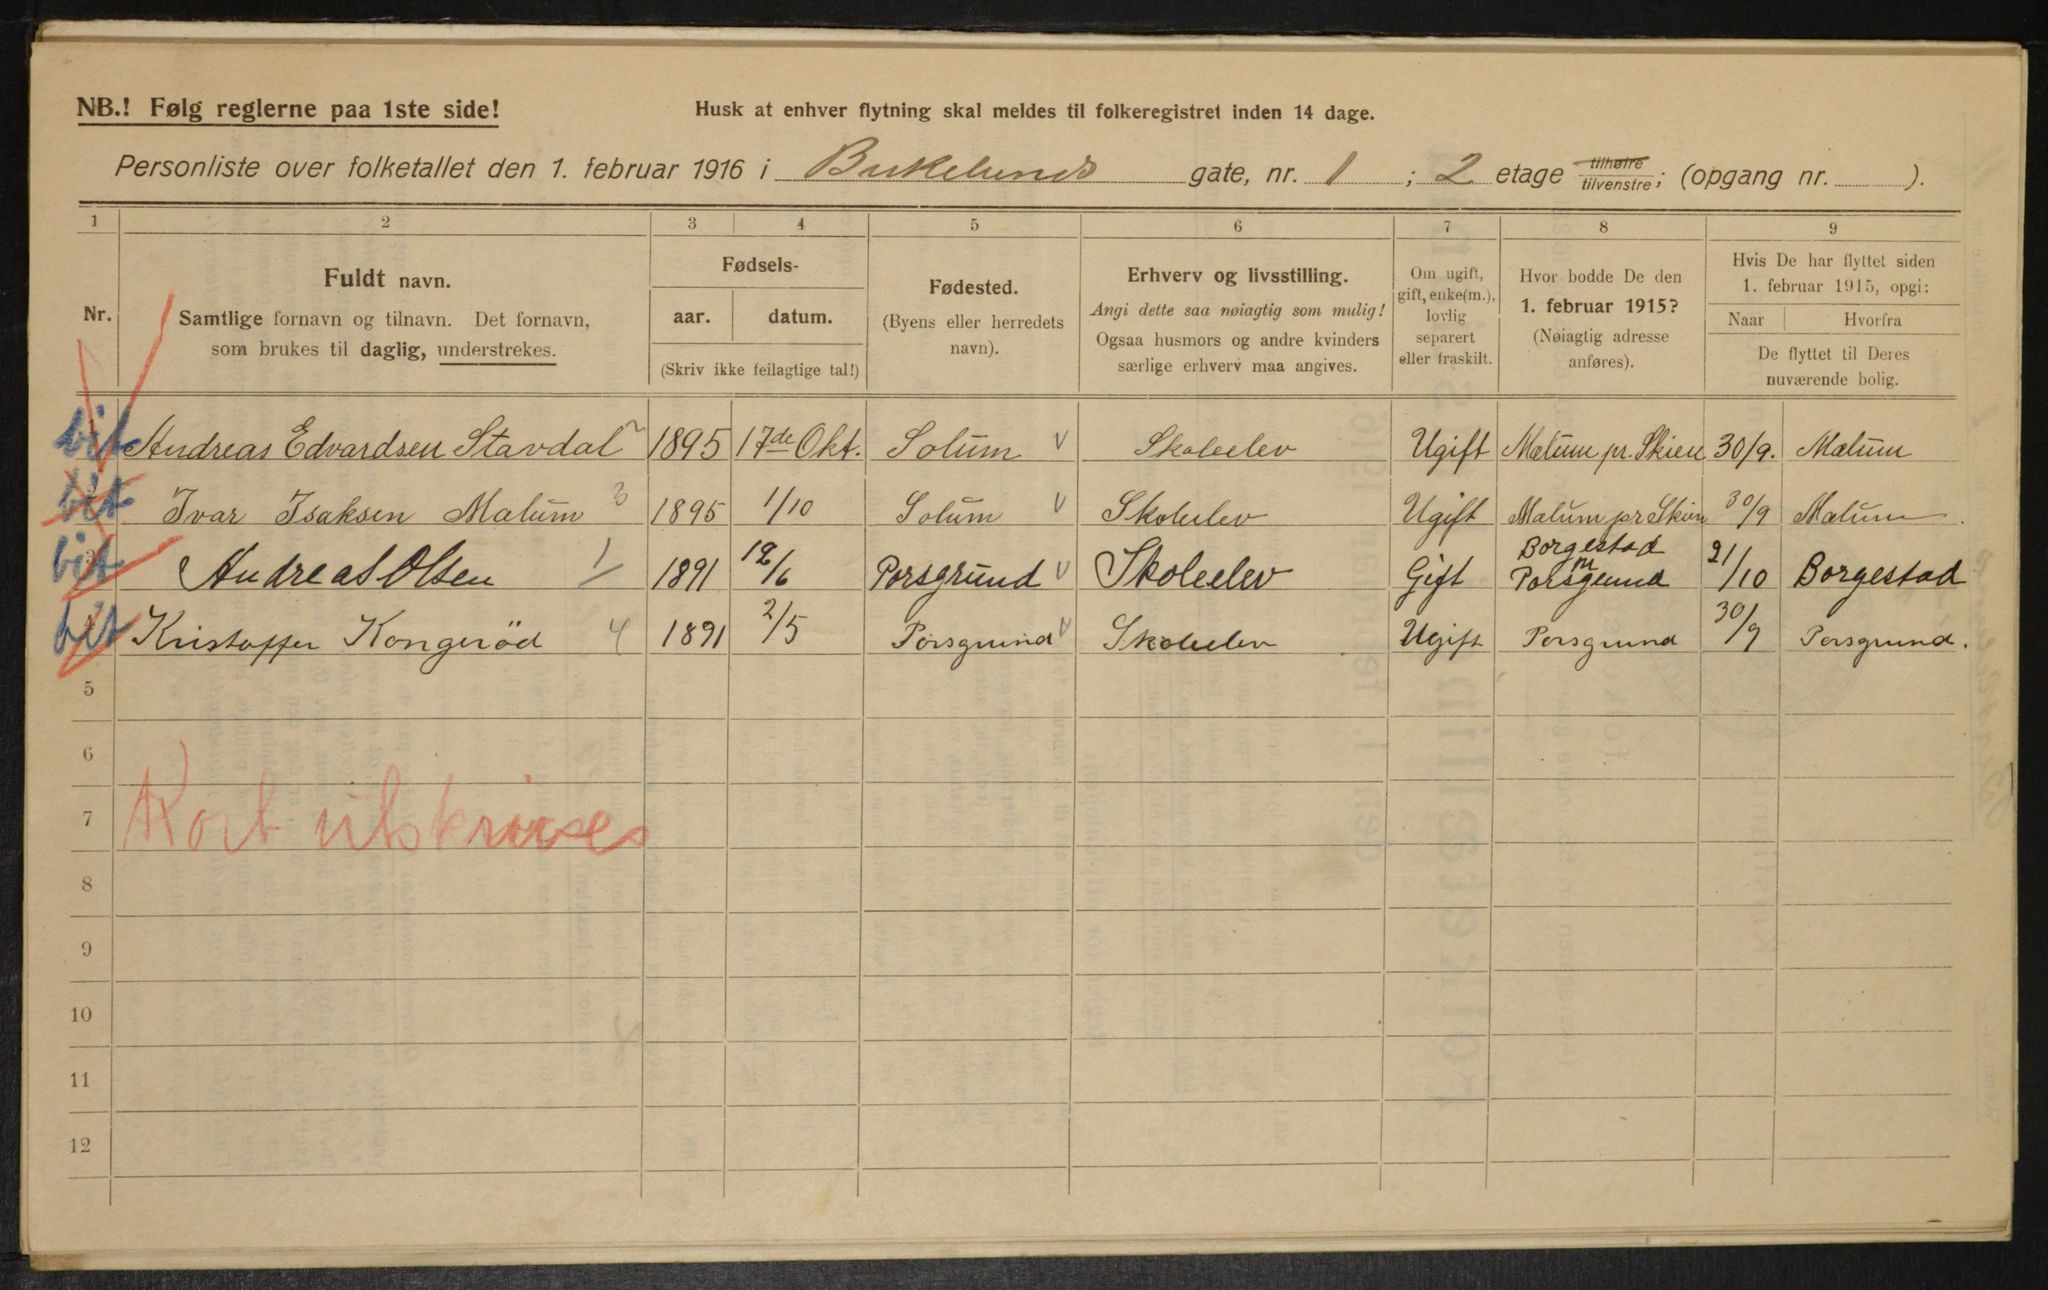 NB.! Følg reglerne paa 1ste side!
Husk at enhver flytning skal meldes til folkeregistret inden 14 dage.
Personliste over folketallet den 1. februar 1916 i Birkelunds gate, nr. 1 ; 2 etage tilhøire tilvenstre; (opgang nr. ).
1 2 3 4 5 6 7 8 9
Nr.
Fuldt navn.
Samtlige fornavn og tilnavn. Det fornavn,
som brukes til daglig, understrekes.
Fødsels-
aar. datum.
(Skriv ikke feilagtige tal!)
Fødested.
(Byens eller herredets
navn).
Erhverv og livsstilling.
Angi dette saa nøiagtig som mulig!
Ogsaa husmors og andre kvinders
særlige erhverv maa angives.
Om ugift,
gift, enke(m.),
lovlig
separert
eller fraskilt.
Hvor bodde De den
1. februar 1915?
(Nøiagtig adresse
anføres).
Hvis De har flyttet siden
1. februar 1915, opgi:
Naar Hvorfra
De flyttet til Deres
nuværende bolig.
bit Andreas Edvardsen Stavdal 2 1895 17de Okt. Solum V Skoleelev Ugift Mælum pr. Skien 30/9. Mælum
bit Ivar Isaksen Mælum 3 1895 1/10 Solum V Skoleelev Ugift Mælum pr Skien 30/9 Mælum.
bit Andreas Olsen 1 1891 12/6 Porsgrund V Skoleelev Gift Borgestad pr Porsgrund 21/10 Borgestad
bit Kristoffer Kongerød 4 1891 2/5 Porsgrund V Skoleelev Ugift Porsgrund 30/9 Porsgrund.
5
6
7 Kort utskrives
8
9
10
11
12